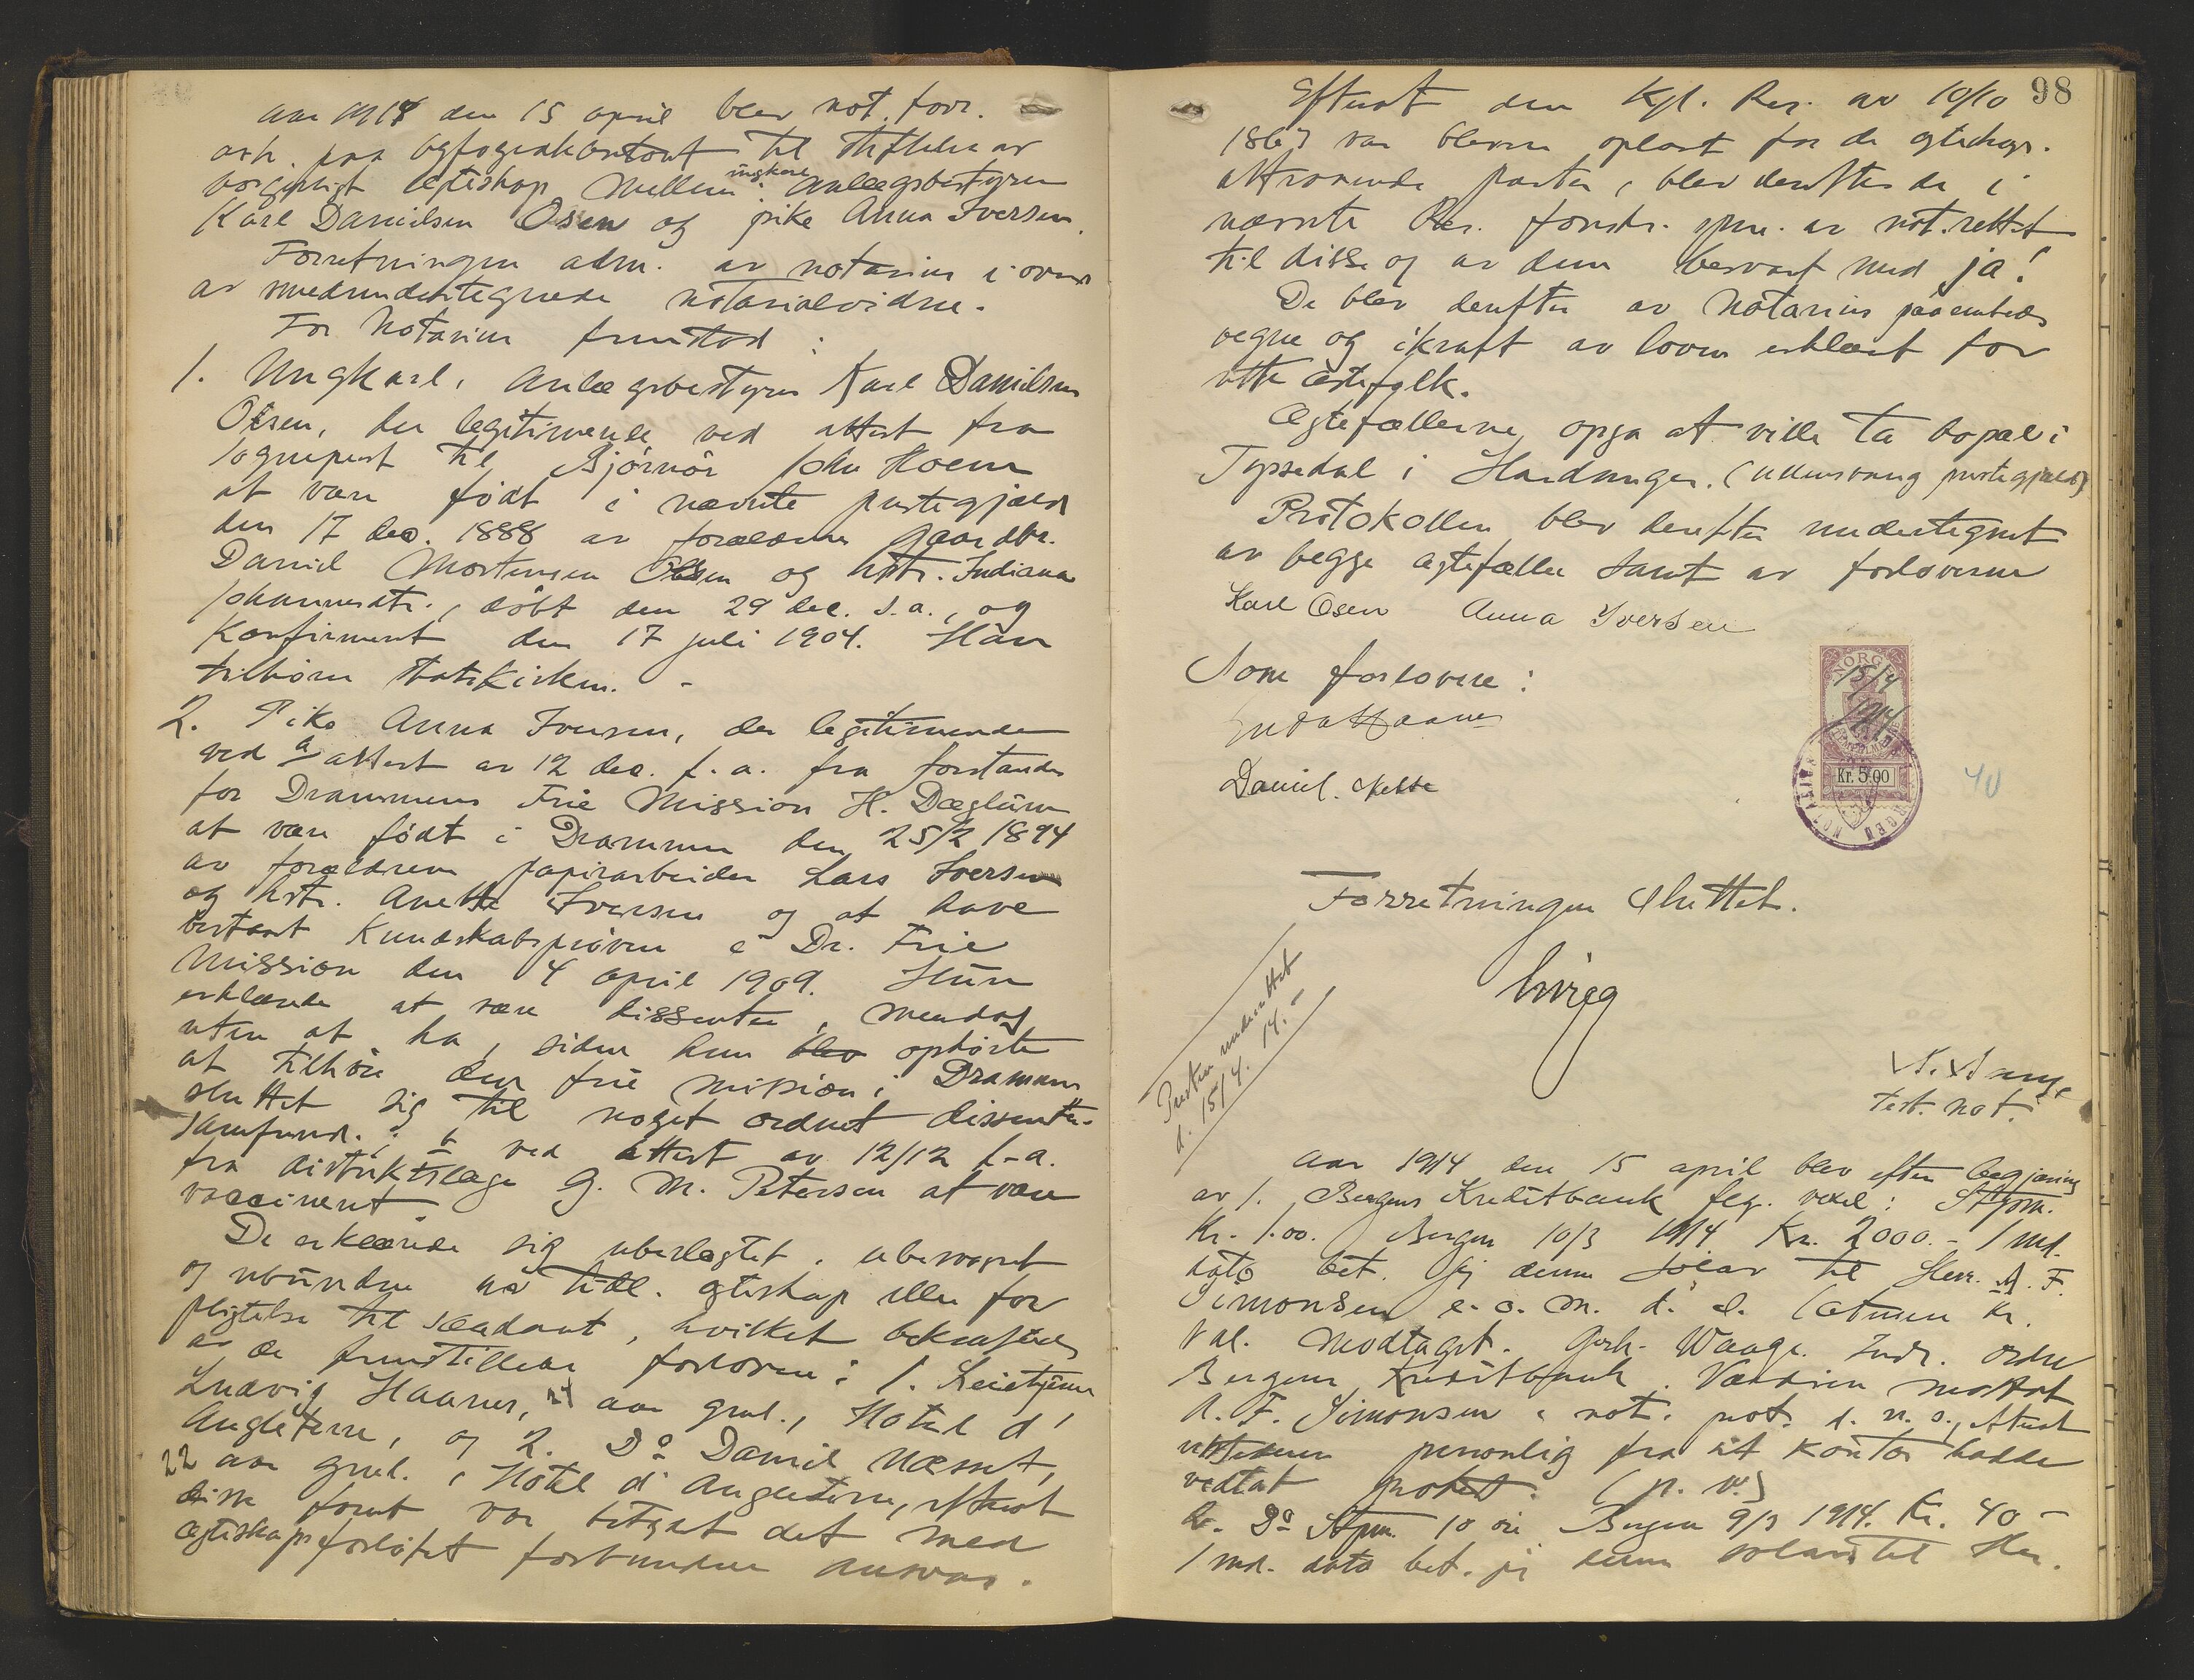 Aar 1914 den 15 april blev not. forr.
avh. paa byfogedkontoret til stiftelse av
borgerligt egteskap mellem ungkarl anlægsbestyrer
Karl Danielsen Osen og pike Anna Iversen.
Forretningen adm. av notarius i overv.
av medundertegnede notarialvidne.
For Notarius fremstod :
1. Ungkarl, Anlægsbestyrer Karl Danielsen
Osen, der legitimerede ved attest fra
sogneprest til Bjørnør John Koern
at være født i nævnte prestegjæld
den 17 dec. 1888 av forældrene gaardbr.
Daniel Mortensen Osen og hstr. Indiana
Johannesdtr., døbt den 29 dec. s.a., og
Konfirmert den 17 juli 1904. Han
tilhører statskirken. -
2. Pike Anna Iversen, der legitimerede
ved a attest av 12 dec. f.a. fra forstander
for Drammens Frie Mission H. Døglum
at være født i Drammen den 25/2 1894
av forældrene papirarbeider Lars Iversen
og hstr. Anette Iversen og at have
bestaat Kundskabsprøven i Dr. Frie
Mission den 4 april 1909. Hun
erklærede at være dissenter, mendog
uten at ha, siden hun blev ophørte
at tilhøre den frie mission i Drammen
sluttet sig til noget ordnet dissenter-
samfund. ; b ved attest av 12/12 f.a.
fra distriktslæge G. M. Petersen at være
vaccinert.
De erklærede sig ubeslegtet, ubesvogret
og ubundne av tidl. egteskap eller for
pligtelse til saadant, hvilket bekræftedes
av de fremstillede forlovere: 1. Reisetjener
Ludvig Haarner, 24 aar gml., Hotel d'
Angleterre, og 2. Do Daniel Næsset,
22 aar gml., Hotel d'Angleterre, efterat
disse foret var betydet det med
egteskapsforløftet forbundne ansvar.
98
Efterat den Kgl. Res. av 10/10
1863 var blevne oplæst for de egteskaps-
attraaende parter, blev derefter de i
nævnte Res. foreskr. spm. av not. rettet
til disse og av dem besvart med ja!
De blev derefter av Notarius paa embeds
vegne og i kraft av loven erklært for
rette ægtefolk.
Ægtefællerne opga at ville ta bopæl i
Tyssedal i Hardanger. (Ullensvang prestegjæld)
Protokollen blev derefter undertegnet
av begge ægtefæller samt av forloverne
Karl Osen Anna Iversen
Som forlovere :
Daniel Næsse
NORGE
15/4
1914
Kr. 5.00
40
Forretningen sluttet.
Presten underrettet
d. 15/4. 14.-
Test. not.
Aar 1914 den 15 april blev efter begjæring
av 1. Bergens Kreditbank flg. vexel : Stpm.
Kr. 1.00. Bergen 10/3 1914 Kr. 2000.- 1 md.
dato bet. jeg denne solar til Herr. A. F.
Simonsen e. o. m. d. S. Kr.
Val. modtaget. Gerh. Waage. Indr. ordre
Bergens Kreditbank. Værdien mottat
A. F. Simonsen, not. prot. d. n. s., efterat
utstederen personlig fra sit kontor hadde
vedtat protest. (n. v.)
2. Do Stpm. 10 øre Bergen 9/3 1914. Kr. 40 -
1 md. dato bet. jeg denne solar til Her.